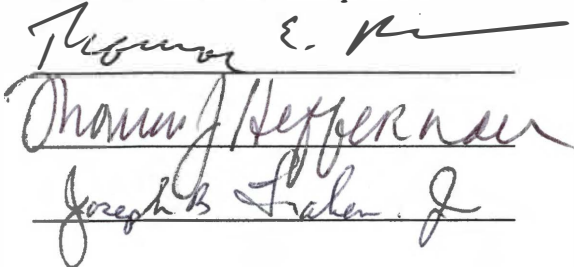 Thomas E.
Thomas J Heffernan
Joseph B Jr